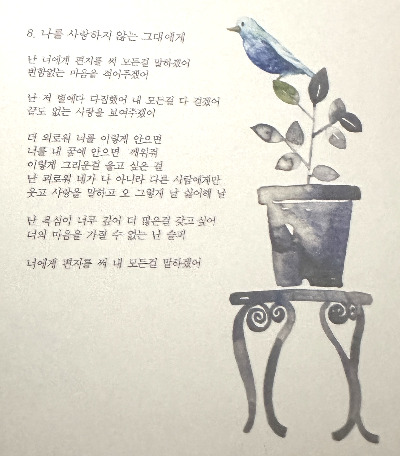 8. 나를 사랑하지 않는 그대에게
난 너에게 편지를 써 모든걸 말하겠어
변함없는 마음을 적어주겠어
난 저 별에다 다짐했어 내 모든걸 다 걸겠어
끝도 없는 사랑을 보여주겠어
더 외로워 너를 이렇게 안으면
너를 내 꿈에 안으면 깨워줘
이렇게 그리운걸 울고 싶은 걸
난 괴로워 네가 나 아니라 다른 사람에게만
웃고 사랑을 말하고 오 그렇게 날 싫어해 날
난 욕심이 너무 깊어 더 많은걸 갖고 싶어
너의 마음을 가질 수 없는 난 슬퍼
너에게 편지를 써 내 모든걸 말하겠어